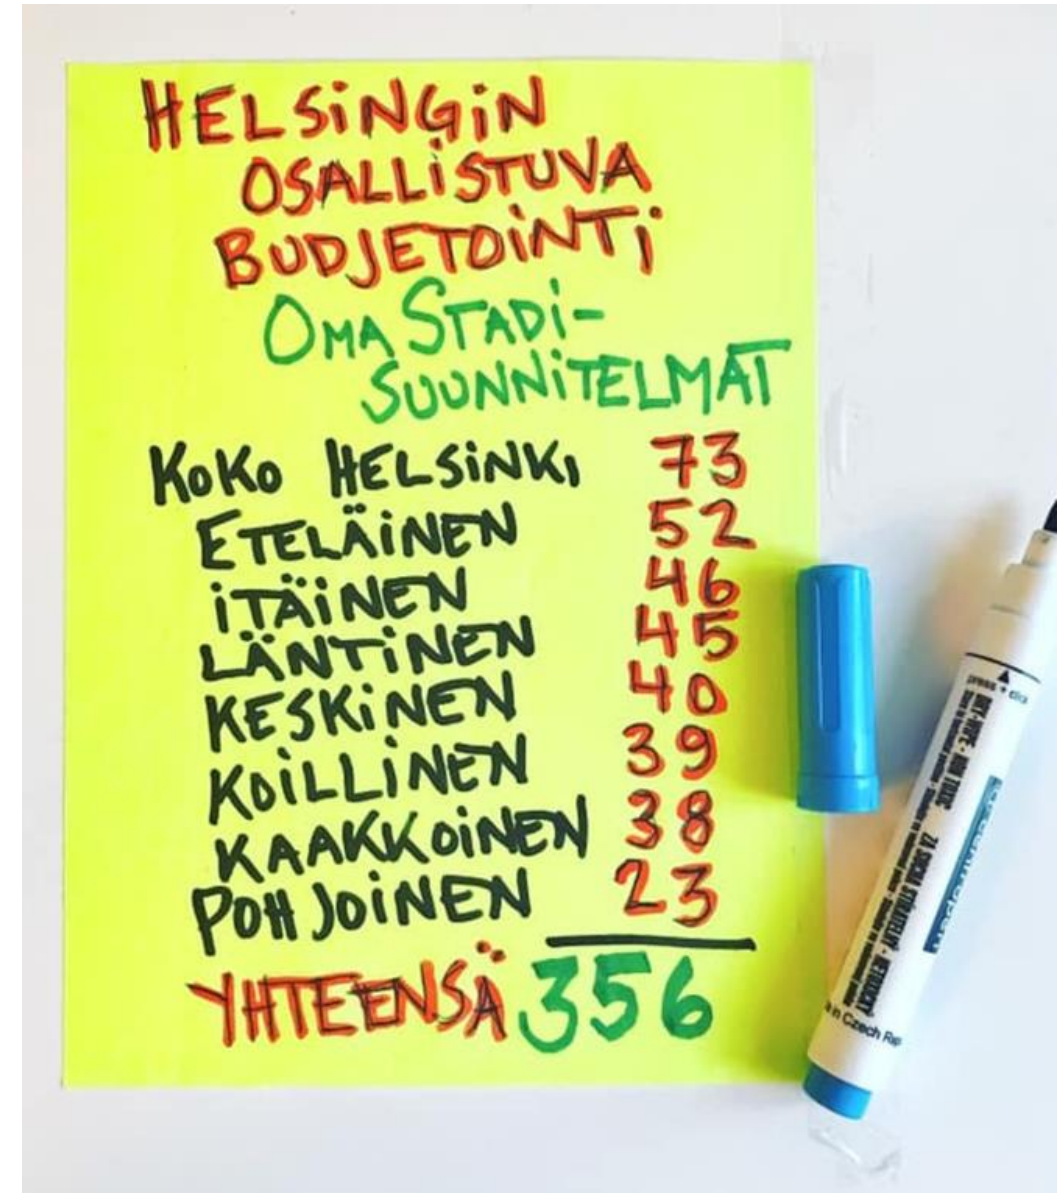 HELSiNGiN
OSALLiSTUVA
BUDJETOiNTi
OMA STADi-
SUUNNiTELMAT
KOKO HELSiNKi 73
ETELÄiNEN 52
iTÄiNEN 46
LÄNTiNEN 45
KESKiNEN 40
KOiLLiNEN 39
KAAKKOiNEN 38
POHJOiNEN 23
YHTEENSÄ 356
press + click
in Czech Rep